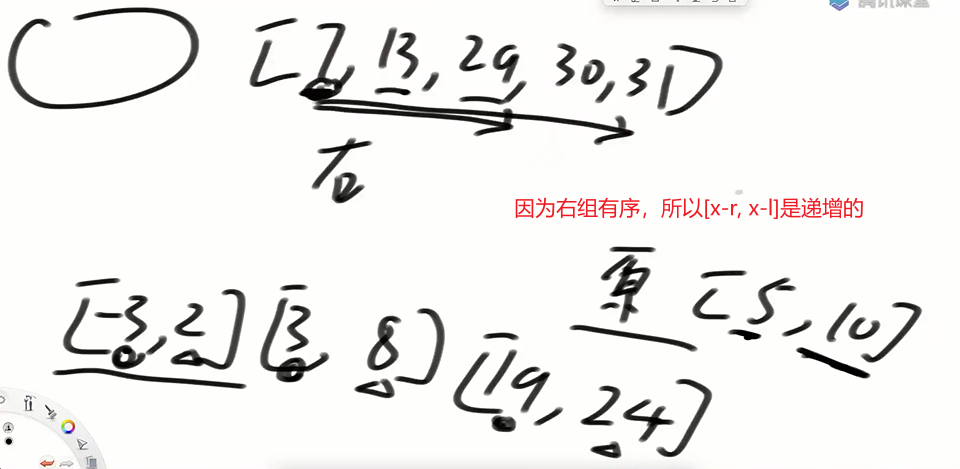 腾讯课堂
[7, 13, 29, 30, 31]
右
因为右组有序，所以[x-r, x-l]是递增的
原 [5, 10]
[-3, 2] [3, 8] [19, 24]